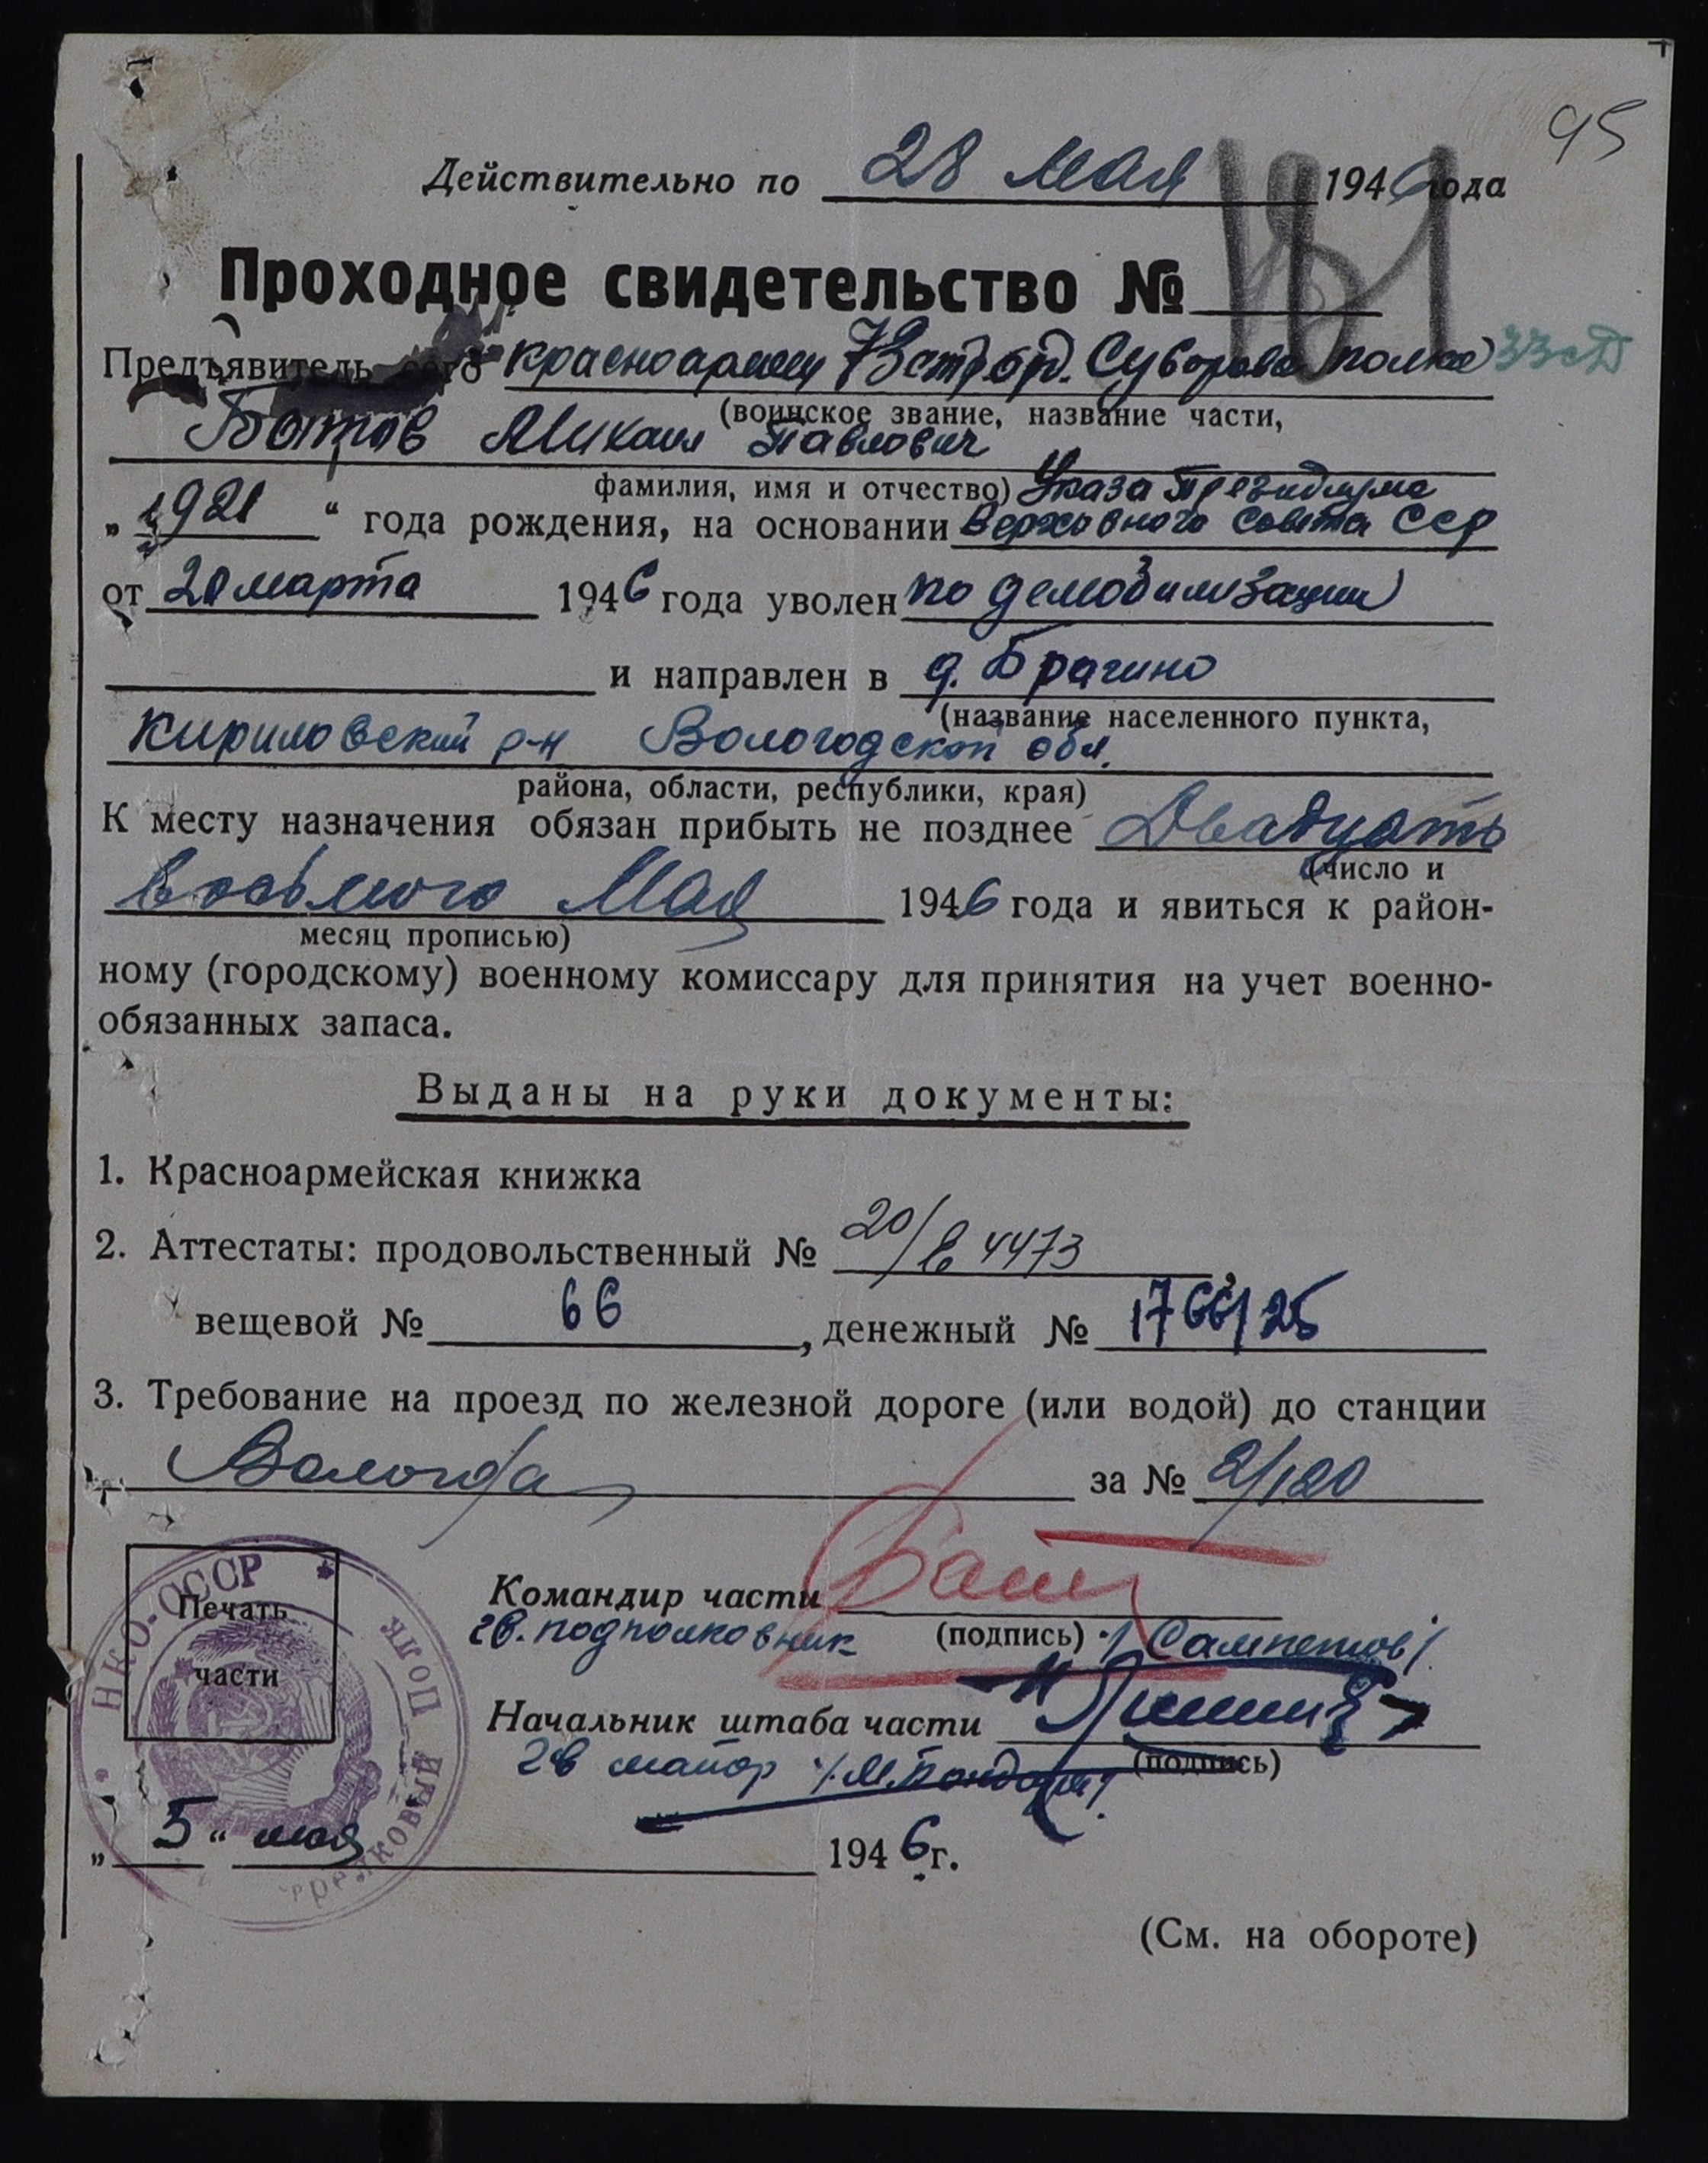 95
Действительно по 28 мая 1946 года
Проходное свидетельство №
Предъявитель сего красноармеец 73 стр. орд. Суворова полка 33 сд
(воинское звание, название части,
Ботов Михаил Павлович
фамилия, имя и отчество) Указа Президиума
„1921“ года рождения, на основании Верховного Совета СССР
от 20 марта 1946 года уволен по демобилизации
и направлен в д. Брагино
(название населенного пункта,
Кириловский р-н Вологодской обл.
района, области, республики, края)
К месту назначения обязан прибыть не позднее Двадцать
(число и
восьмого Мая 1946 года и явиться к район-
месяц прописью)
ному (городскому) военному комиссару для принятия на учет военно-
обязанных запаса.
Выданы на руки документы:
1. Красноармейская книжка
2. Аттестаты: продовольственный № 20/ 4473,
вещевой № 66, денежный № 1766/25
3. Требование на проезд по железной дороге (или водой) до станции
Вологда за № 2/120
НКО-СССР
Печать
части
стрелковый полк
Командир части
гв. подполковник (подпись)
Начальник штаба части
гв майор (подпись)
„5“ мая 1946 г.
(См. на обороте)